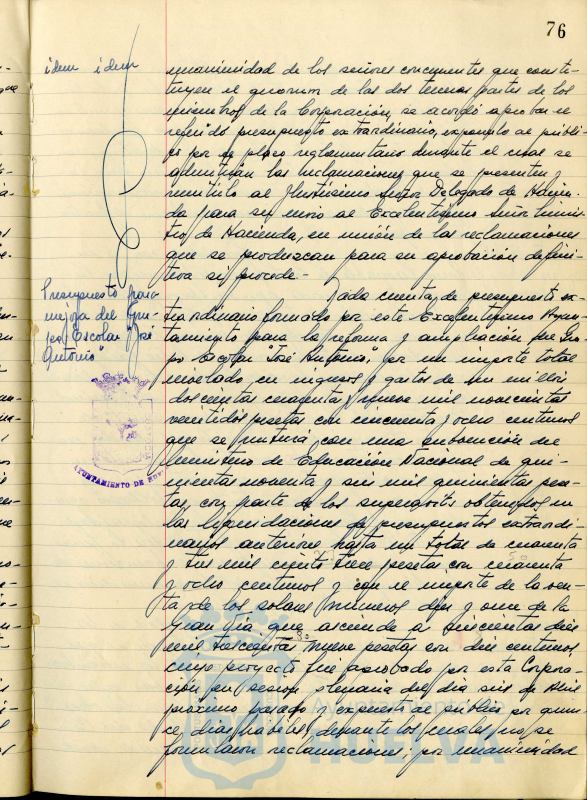 76
idem idem
unanimidad de los señores concurrentes que consti-
tuyen el quorum de las dos terceras partes de los
miembros de la Corporación, se acordó aprobar el
referido presupuesto extraordinario, exponerlo al públi-
co por el plazo reglamentario durante el cual se
admitirán las reclamaciones que se presenten y
remitirlo al Ilustrísimo Señor Delegado de Hacien-
da para su envío al Excelentísimo Señor Minis-
tro de Hacienda, en unión de las reclamaciones
que se produzcan para su aprobación defini-
tiva si procede.-
Presupuesto para
mejora del Gru-
po Escolar "José
Antonio"
Dada cuenta de presupuesto ex-
traordinario formado por este Excelentísimo Ayun-
tamiento para la reforma y ampliación del Gru-
po Escolar "José Antonio", por un importe total
nivelado, en ingresos y gastos de un millón
doscientas cincuenta y nueve mil novecientas
veintidos pesetas con cincuenta y ocho centimos
que se nutrirá con una subvención del
Ministerio de Educación Nacional de qui-
nientas noventa y seis mil quinientas pese-
tas, con parte de los superavits obtenidos en
las liquidaciones de presupuestos extraordi-
narios anteriores hasta un total de cincuenta
y tres mil ciento trece pesetas con cuarenta
y ocho centimos y con el importe de la ven-
ta de los solares números diez y once de la
Gran Vía que asciende a seiscientas diez
mil trescientas nueve pesetas con diez centimos
cuyo proyecto fué aprobado por esta Corpora-
ción en sesión plenaria del día seis de Abril
próximo pasado y expuesto al público por quin-
ce días habiles, durante los cuales no se
formularon reclamaciones; por unanimidad
AYUNTAMIENTO DE HUE
Ayuntamiento de
HUELVA